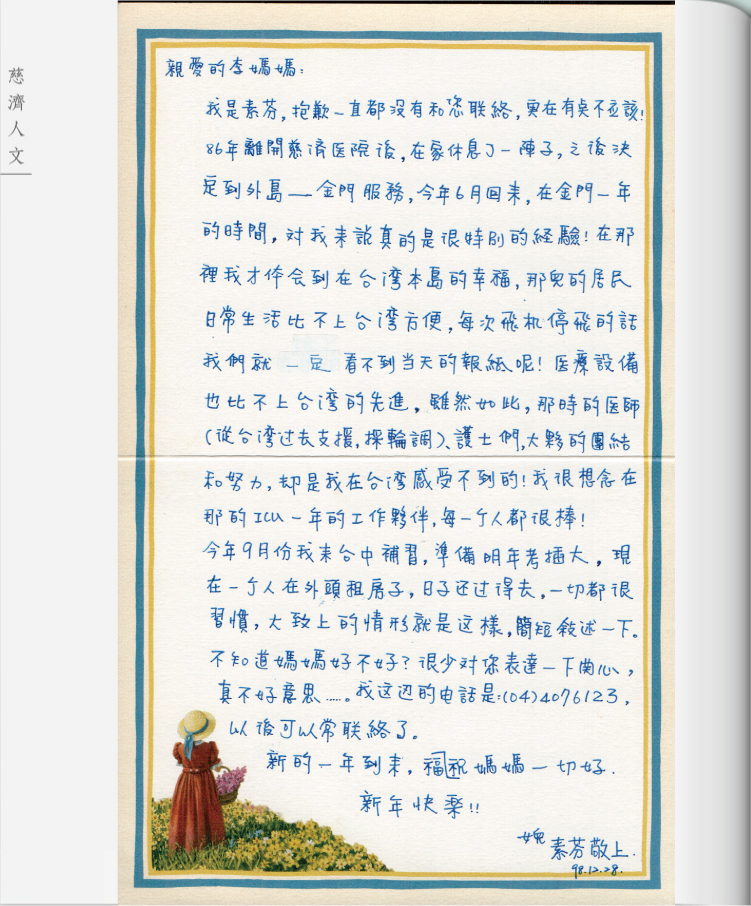 慈濟人文
親愛的李媽媽:
我是素芬,抱歉一直都沒有和您联絡,實在有点不应該!
86年離開慈濟医院後,在家休息了一陣子,之後決
定到外島——金門服務,今年6月回来,在金門一年
的時間,对我来說真的是很特別的經驗!在那
裡我才体会到在台湾本島的幸福,那兒的居民
日常生活比不上台湾方便,每次飛机停飛的話
我們就一定看不到当天的報紙呢!医療設備
也比不上台湾的先進,雖然如此,那時的医師
(從台湾过去支援,採輪調)、護士們,大夥的團結
和努力,却是我在台湾感受不到的!我很想念在
那的ICU一年的工作夥伴,每一个人都很棒!
今年9月份我来台中補習,準備明年考插大,現
在一个人在外頭租房子,日子还过得去,一切都很
習慣,大致上的情形就是这樣,簡短敘述一下。
不知道媽媽好不好?很少对您表達一下関心,
真不好意思……。我这边的电話是:(04)4076123,
以後可以常联絡了。
新的一年到来,福祝媽媽一切好.
新年快樂!!
女兒 素芬敬上.
98.12.28.